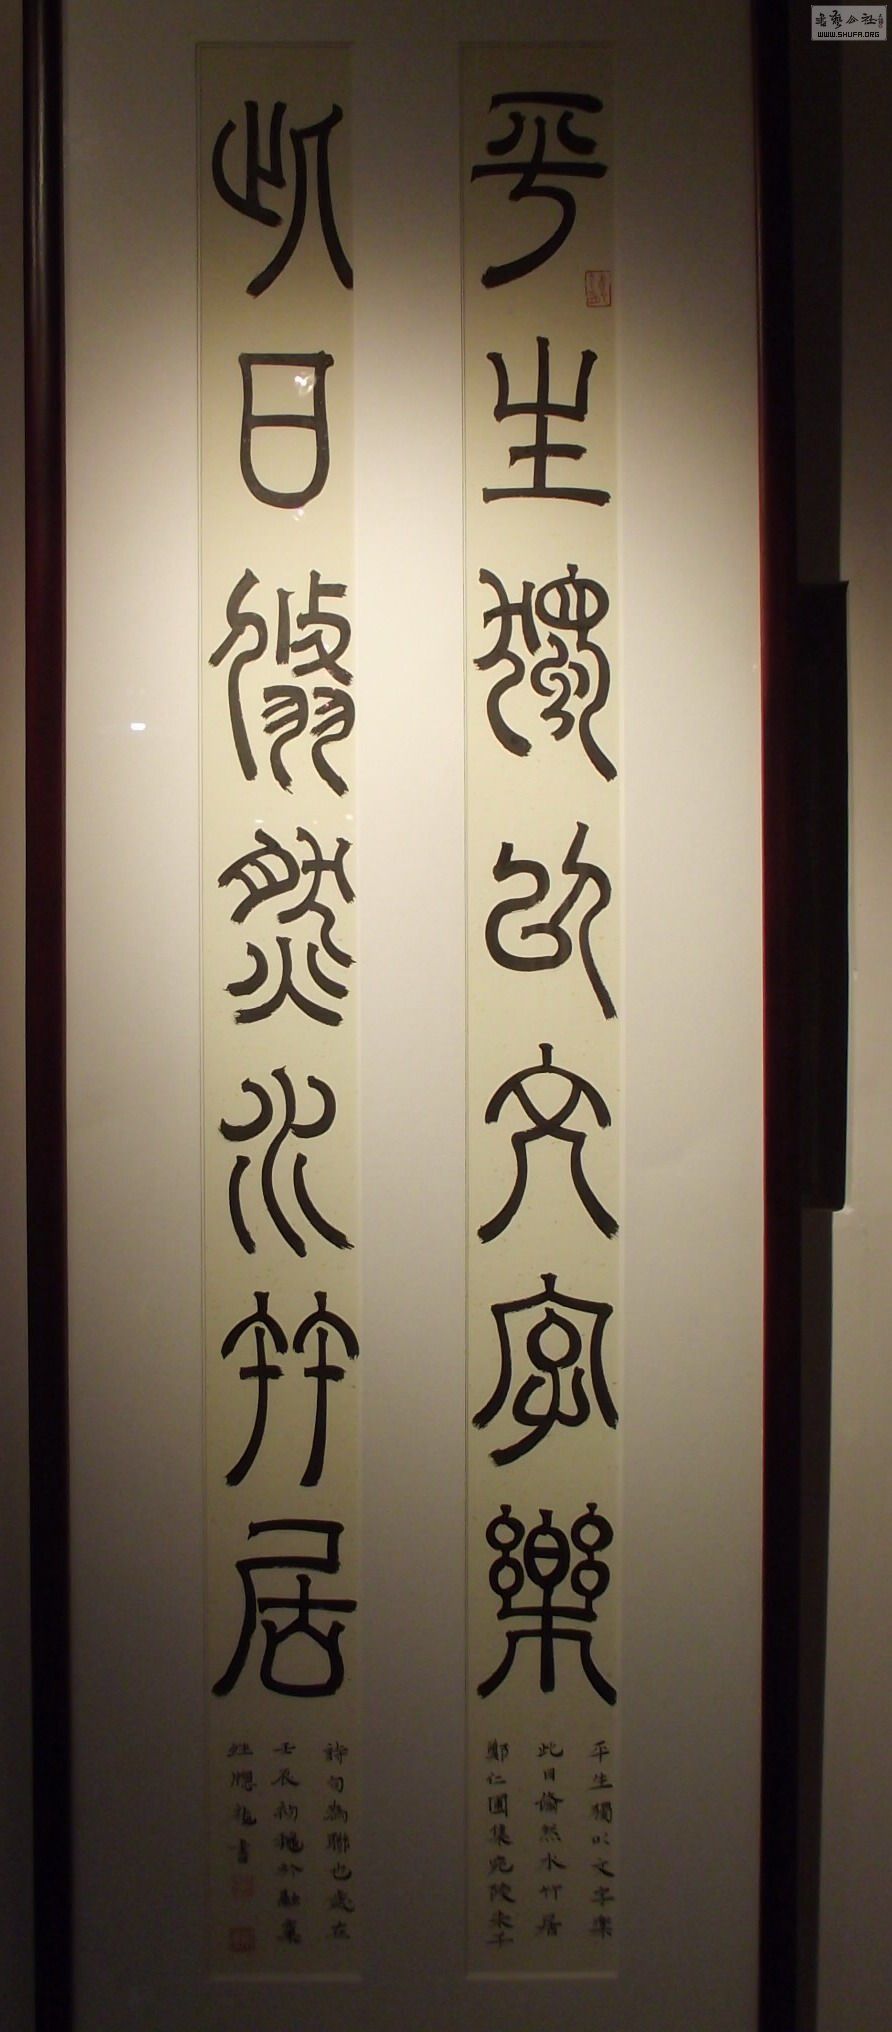 平生獨以文字樂
此日翛然水竹居
平生獨以文字樂
此日翛然水竹居
鄭仁圃集宛陵朱子
詩句為聯也歲在
壬辰初秋於
書
WWW.SHUFA.ORG